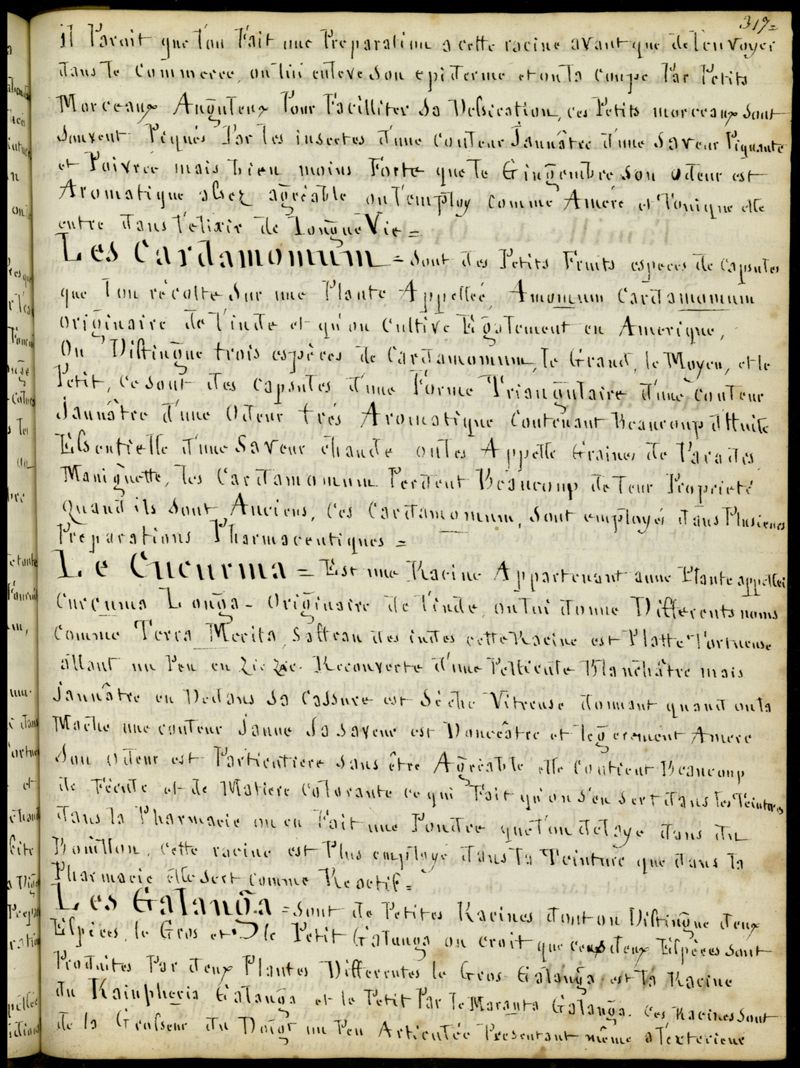 317=
Il Parait que l'on Fait une Preparation a cette racine avant que de l'envoyer
dans le Commerce, on lui enleve son epiderme et on la Coupe Par Petits
Morceaux Anguleux Pour Facilliter Sa Dessication, ces Petits morceaux sont
Souvent Piqués Par les insectes d'une Couleur Jaunâtre d'une Saveur Piquante
et Poivrée mais bien moins Forte que le Gingembre son Odeur est
Aromatique assez agréable on l'employ Comme Amère et Tonique elle
entre dans l'elixir de Longue Vie =
Les Cardamomum = Sont des Petits Fruits especes de Capsules
que l'on récolte Sur une Plante Appellée, Amomum Cardamomum
Originaire de l'inde et qu'on Cultive Egalement en Amerique,
On Distingue trois espèces de Cardamomum, le Grand, le Moyen, et le
Petit, ce sont des Capsules d'une Forme Triangulaire d'une Couleur
Jaunâtre d'une Odeur trés Aromatique Contenant Beaucoup d'Huile
Essentielle d'une Saveur chaude on les Appelle Graines de Paradis
Maniguette, les Cardamomum Perdent Beaucoup de leur Propriété
Quand ils Sont Anciens, Ces Cardamomum, Sont employés dans Plusieurs
Préparations Pharmaceutiques =
Le Cucurma = Est une Racine Appartenant a une Plante appellée
Curcuma Longa - Originaire de l'inde, on lui donne Differents noms
Comme Terra Merita, Saffran des indes cette Racine est Platte Tortueuse
allant un Peu en Zic Zac. Recouverte d'une Pellicule Blanchâtre mais
Jaunâtre en Dedans Sa Cassure est Sèche Vitreuse donnant quand on la
Mache une couleur Jaune Sa saveur est Douceâtre et legerement Amere
Son Odeur est Particuliere Sans être Agréable elle Contient Beaucoup
de Fécule et de Matière Colorante ce qui Fait qu'on s'en sert dans les Teintures
dans la Pharmacie on en Fait une Poudre que l'on délaye dans du
Bouillon, Cette racine est Plus employé dans la Teinture que dans la
Pharmacie elle Sert Comme Reactif =
Les Galanga = Sont de Petites Racines dont on Distingue deux
Espèces, le Gros et le Petit Galanga on croit que ces deux Espèces sont
Produites Par deux Plantes Differentes le Gros Galanga est la Racine
du Kaimpheria Galanga et le Petit Par le Maranta Galanga. Ces Racines Sont
de la Grosseur du Doigt un Peu Articulée Presentant même a l'exterieur